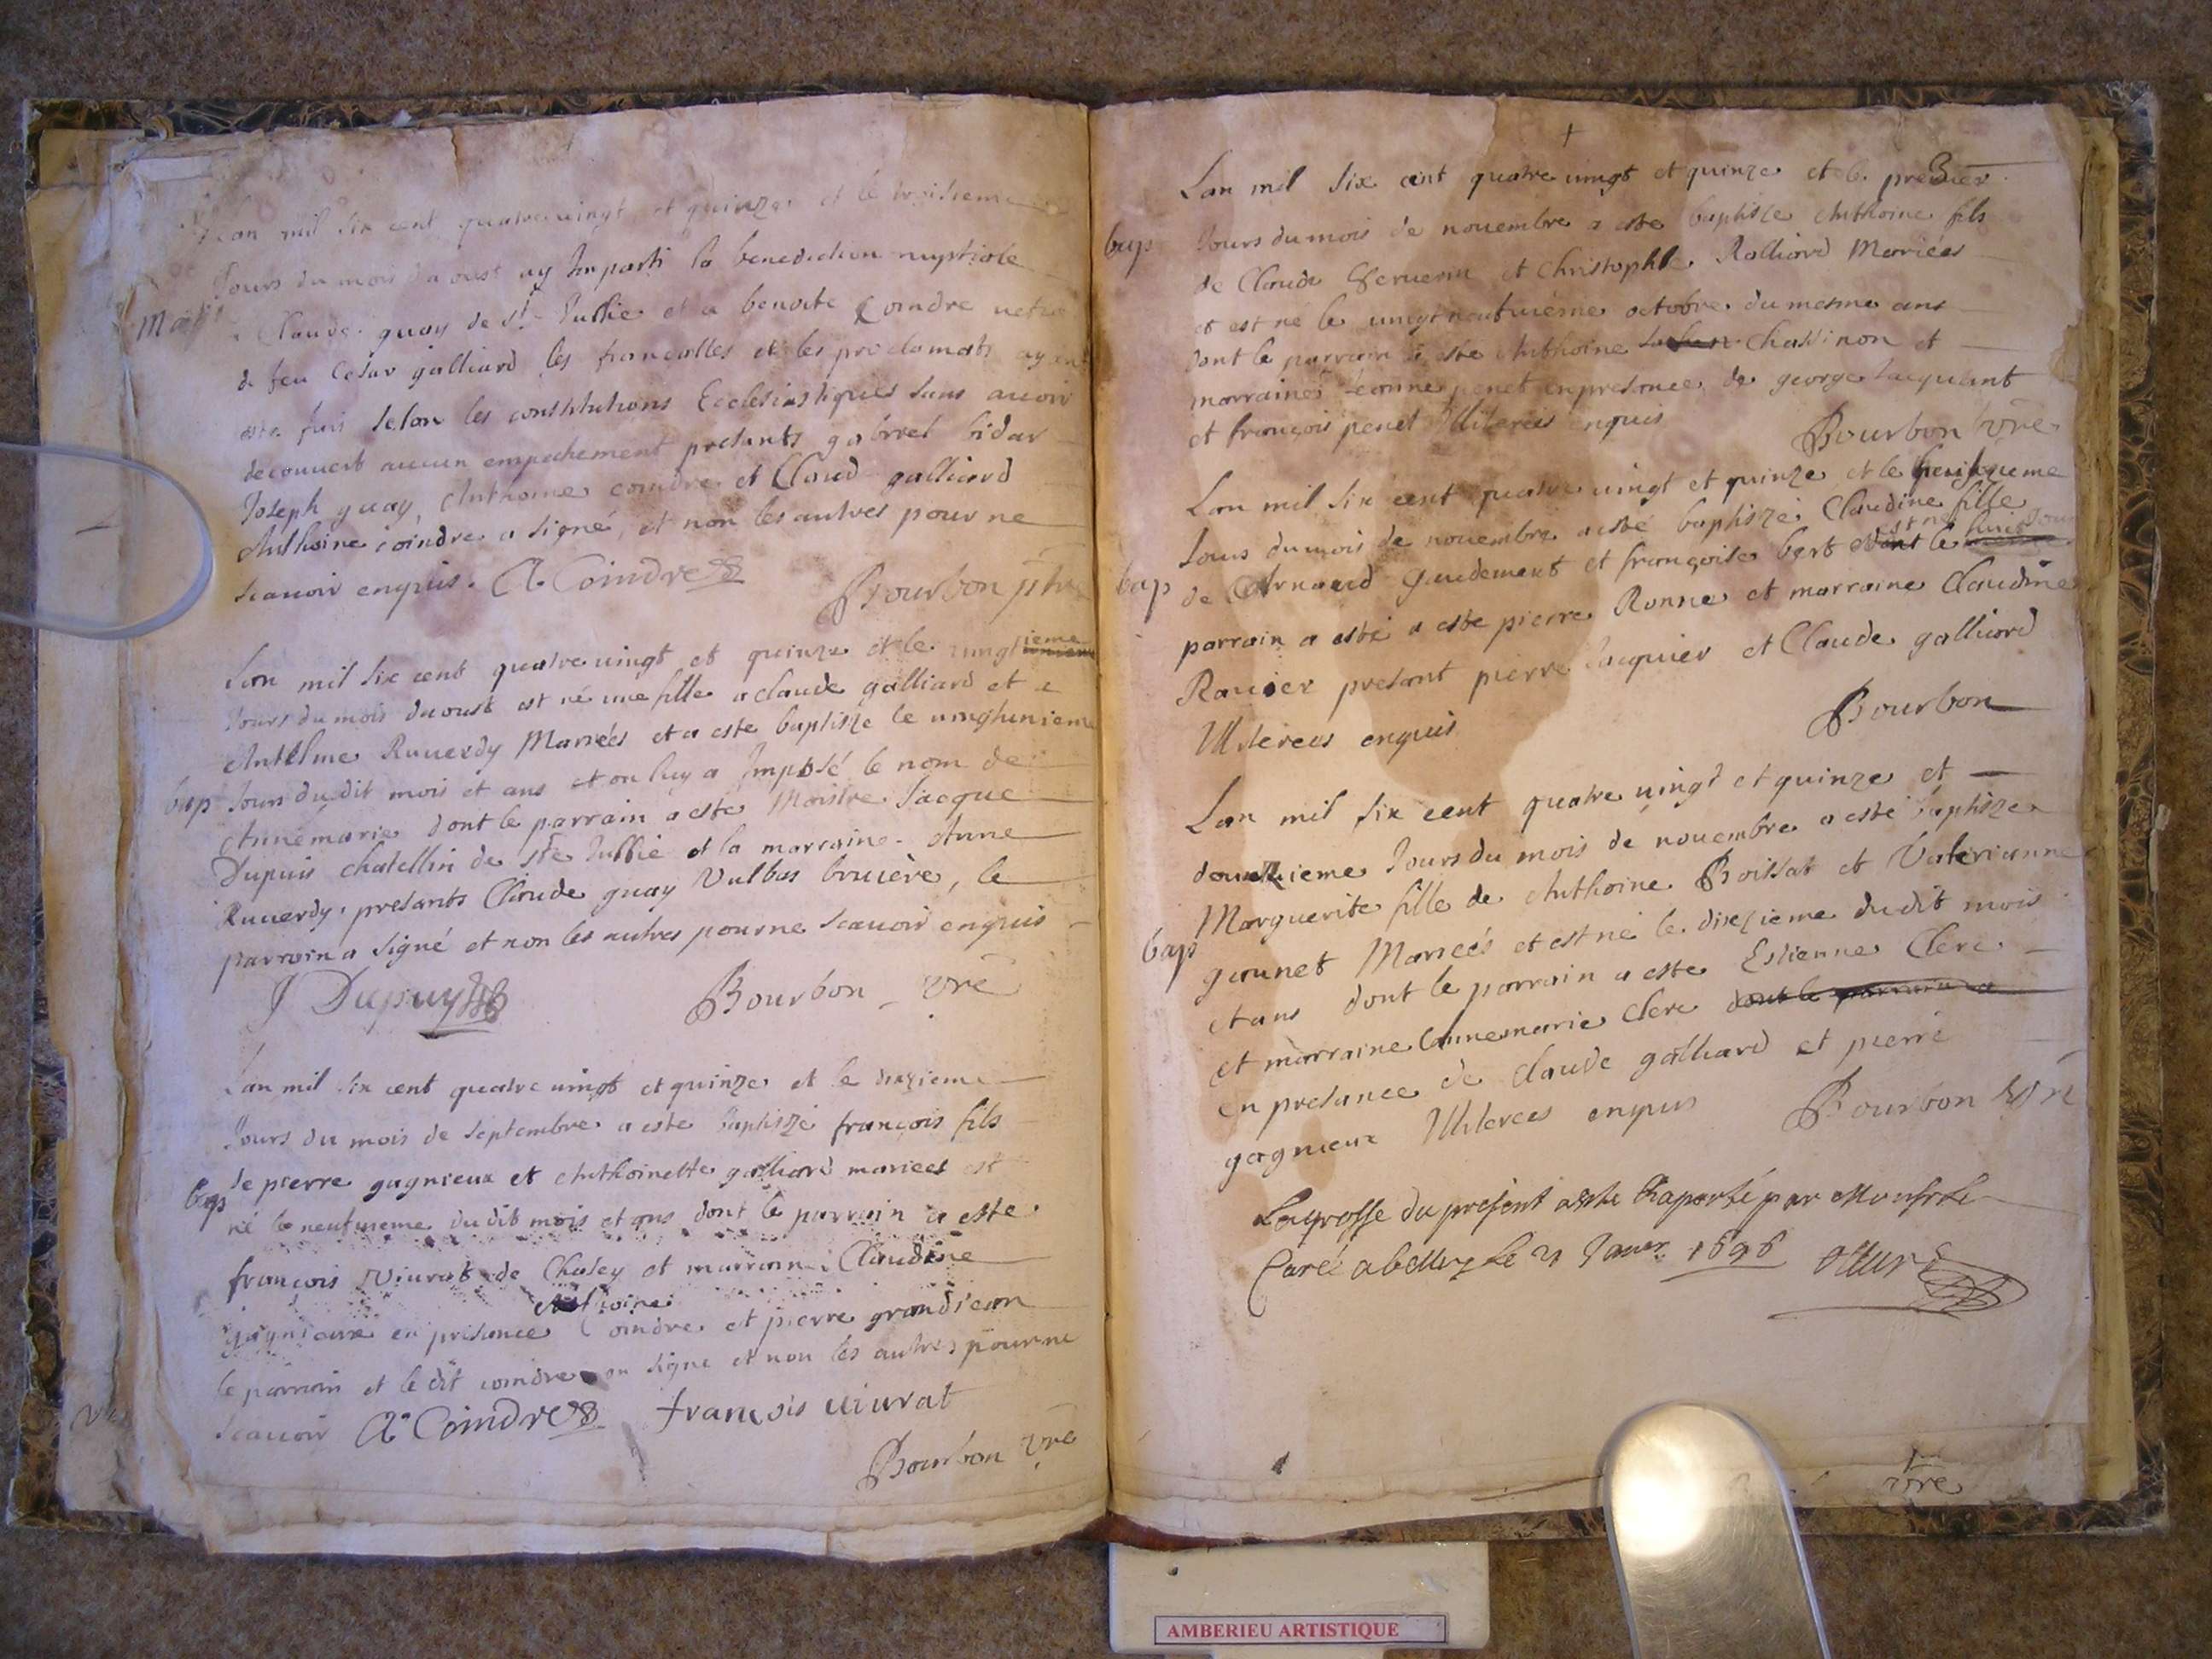 Lan mil six cent quatre uingt et quinze et le troisieme
Jours du mois daoust ay Imparti la benediction nuptiale
Mari
a Claude quay de st Jullie et a benoite Coindre uefue
de feu Cesar galliard les fiancailles et les proclamats ayant
este fais selon les constitutions Ecclesiastiques sans auoir
decouuert aucun empechement presants gabriel bidar
Joseph quay, Anthoine coindre et Claud galliard
Anthoine coindre a signé, et non les autres pour ne
scauoir enquis. A Coindre Bourbon ptre
Lan mil six cent quatre uingt et quinze et le uingtieme
Jours du mois daoust est né une fille a claude galliard et a
Anthelme Ruuerdy Mariées et a este baptisze le uingtunieme
bap Jours du dit mois et ans et on luy a Imposé le nom de
Annémarie dont le parrain a este Maistre Jacque
Dupuis chatellin de ste Jullie et la marraine Anne
Ruuerdy, presants Claude quay Vulbas bruière, le
parrain a signé et non les autres pour ne scauoir enquis
J Dupuy Bourbon vre
Lan mil six cent quatre uingt et quinze et le dixzieme
Jours du mois de septembre a este baptiszé françois fils
de pierre gagnieux et Anthoinette galliard mariees est
bap
né le neufuieme du dit mois et ans dont le parrain a este
françois Viurat de Chasey et marraine Claudine
Anthoine
gagnieux en presance Coindre et pierre grandiean
le parrain et le dit coindre on signe et non les autres pour ne
scauoir A Coindre françois uiurat
Bourbon vre
Lan mil six cent quatre uingt et quinze et le premier
bap Jours du mois de nouembre a este baptisze Anthoine fils
de Claude et Christophle Ralliard Mariees
et est né le uingt neufuiéme octobre du mesme ans
dont le parrain a este Anthoine Chassinon et
marraine Jeanne penet en presance de george Jacquemt
et françois penet Illiterees enquis Bourbon vre
Lan mil six cent quatre uingt et quinze et le
Jours du mois de nouembre a esté baptiszé Claudine fille
est né Jour
bap de Arnaud gaudement et françoise bert dont le
parrain a esté a este pierre Ronne et marraine Claudine
Rauier presant pierre Jacquier et Claude galliard
Illiterees enquis Bourbon
Lan mil six cent quatre uingt et quinze et
douzieme Jours du mois de nouembre a esté baptisze
Marguerite fille de Anthoine Boissat et Valerianne
bap
gounet Mariées et est né le dixzieme du dit mois
et ans dont le parrain a este Estienne Clerc
et marraine annemarie Clerc dont le parrain a
en presance de claude galliard et pierre
gagnieux Illiterees enquis Bourbon vre
La grosse du present acte Raporté par Monsr le
Curé a belley le 21 Januer 1696
vre
AMBERIEU ARTISTIQUE